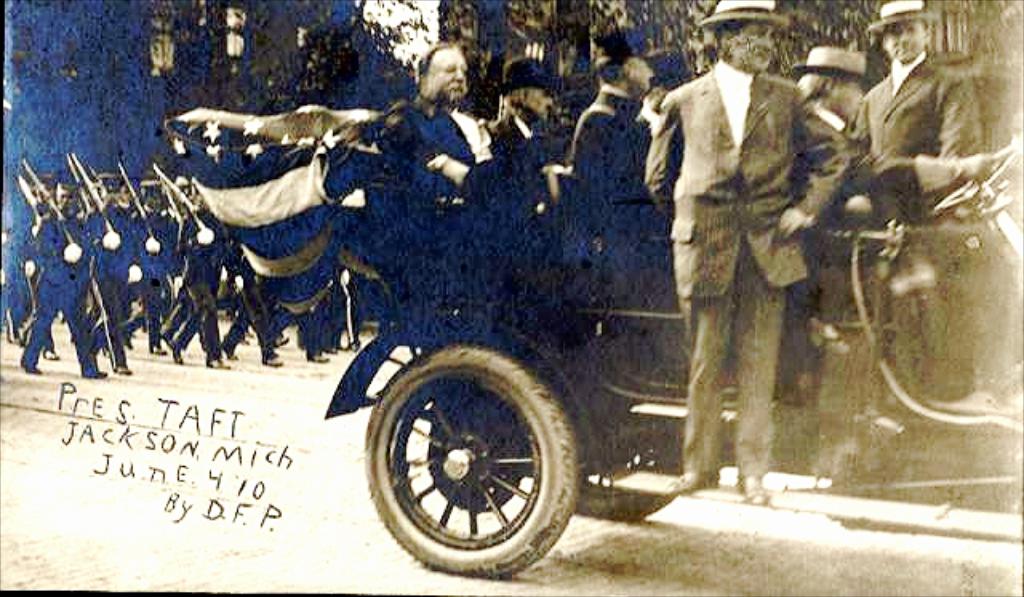 Pres. TAFT
JACKSON, Mich
JunE. 4 '10
By D.F.P.